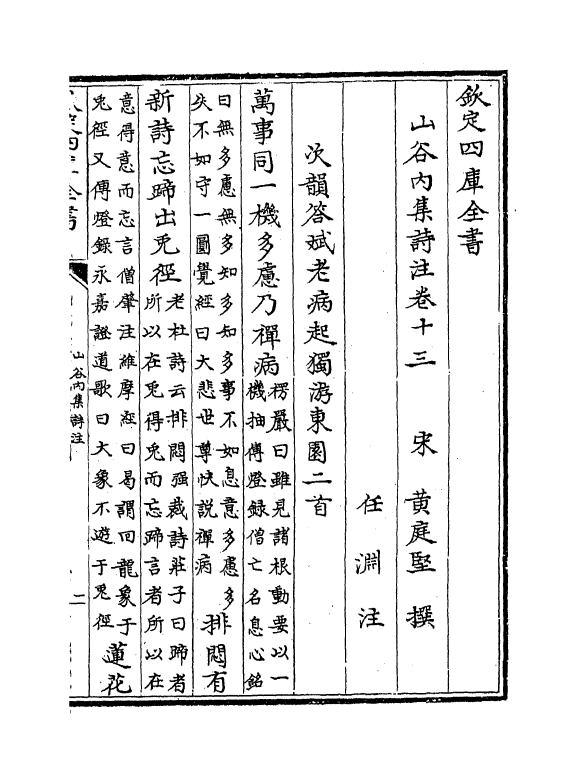 欽定四庫全書
山谷內集詩注卷十三 宋 黃庭堅 撰
任淵 注
次韻答斌老病起獨游東園二首
萬事同一機多慮乃禪病
楞嚴曰雖見諸根動要以一
機抽傳燈録僧亡名息心銘
曰無多慮無多知多知多事不如息意多慮多
失不如守一圓覺經曰大悲世尊快說禪病
排悶有
新詩忘蹄出兎徑
老杜詩云排悶强裁詩莊子曰蹄者
所以在兎得兎而忘蹄言者所以在
意得意而忘言僧肇注維摩經曰曷謂回龍象于
兎徑又傳燈録永嘉證道歌曰大象不遊于兎徑
蓮花
山谷內集詩注